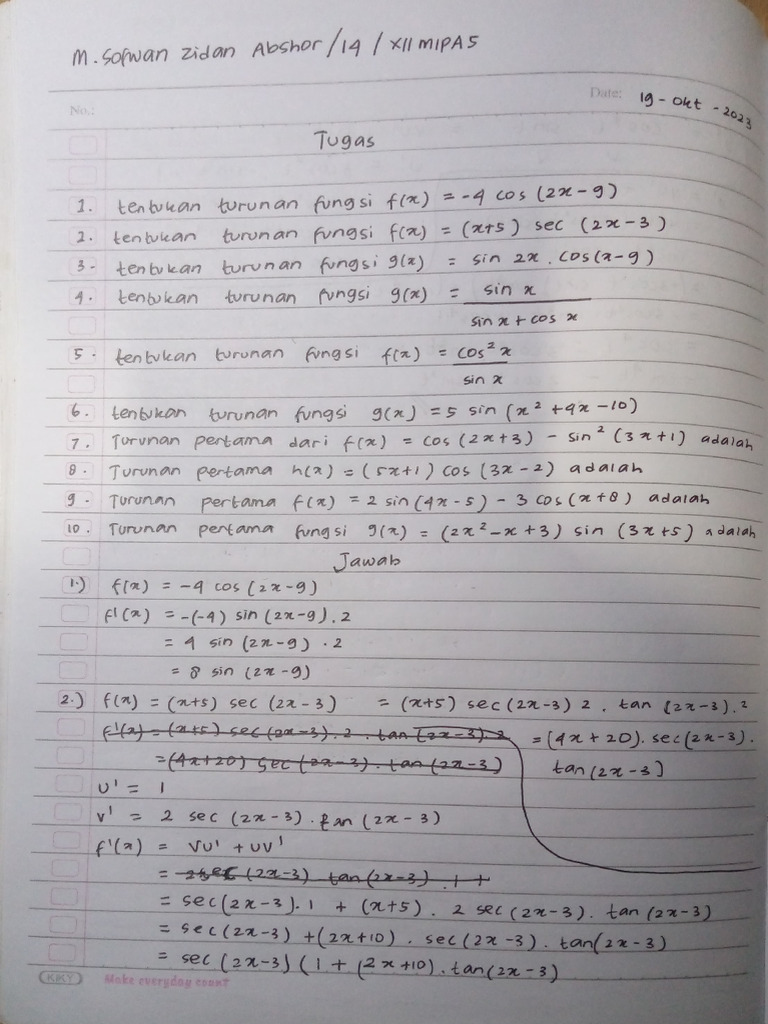 M. Sofwan Zidan Abshor / 14 / XII MIPA 5
No.:
Date: 19 - Okt - 2023
Tugas
1. tentukan turunan fungsi f(x) = -4 cos (2x - 9)
2. tentukan turunan fungsi f(x) = (x+5) sec (2x - 3)
3. tentukan turunan fungsi g(x) = sin 2x . cos(x - 9)
4. tentukan turunan fungsi g(x) = sin x
sin x + cos x
5. tentukan turunan fungsi f(x) = cos² x
sin x
6. tentukan turunan fungsi g(x) = 5 sin (x² + 4x - 10)
7. Turunan pertama dari f(x) = cos (2x + 3) - sin² (3x + 1) adalah
8. Turunan pertama h(x) = (5x+1) cos (3x - 2) adalah
9. Turunan pertama f(x) = 2 sin (4x - 5) - 3 cos (x + 8) adalah
10. Turunan pertama fungsi g(x) = (2x² - x + 3) sin (3x + 5) adalah
Jawab
1.) f(x) = -4 cos (2x - 9)
f'(x) = -(-4) sin (2x - 9) . 2
= 4 sin (2x - 9) . 2
= 8 sin (2x - 9)
2.) f(x) = (x+5) sec (2x - 3) = (x+5) sec (2x - 3) 2 . tan (2x - 3) . 2
f'(x) = (x+5) sec (2x - 3) . 2 . tan (2x - 3) 2 = (4x + 20) . sec (2x - 3) .
= (4x + 20) sec (2x - 3) . tan (2x - 3) tan (2x - 3)
U' = 1
V' = 2 sec (2x - 3) . tan (2x - 3)
f'(x) = VU' + UV'
= 2 sec (2x - 3) tan (2x - 3) . 1 +
= sec (2x - 3) . 1 + (x+5) . 2 sec (2x - 3) . tan (2x - 3)
= sec (2x - 3) + (2x + 10) . sec (2x - 3) . tan (2x - 3)
= sec (2x - 3) (1 + (2x + 10) . tan (2x - 3)
KIKY Make everyday count